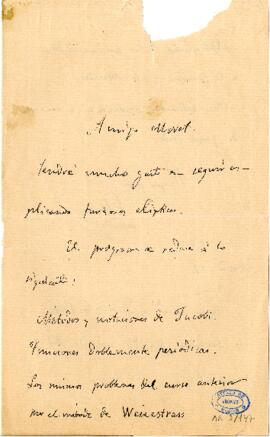 Amigo Moret.
Tendré mucho gusto en seguir ex-
plicando funciones elípticas.
El programa se reduce á lo
siguiente:
Métodos y notaciones de Jacobi.
Funciones doblemente periódicas.
Los mismos problemas del curso anterior
por el método de Weierstrass